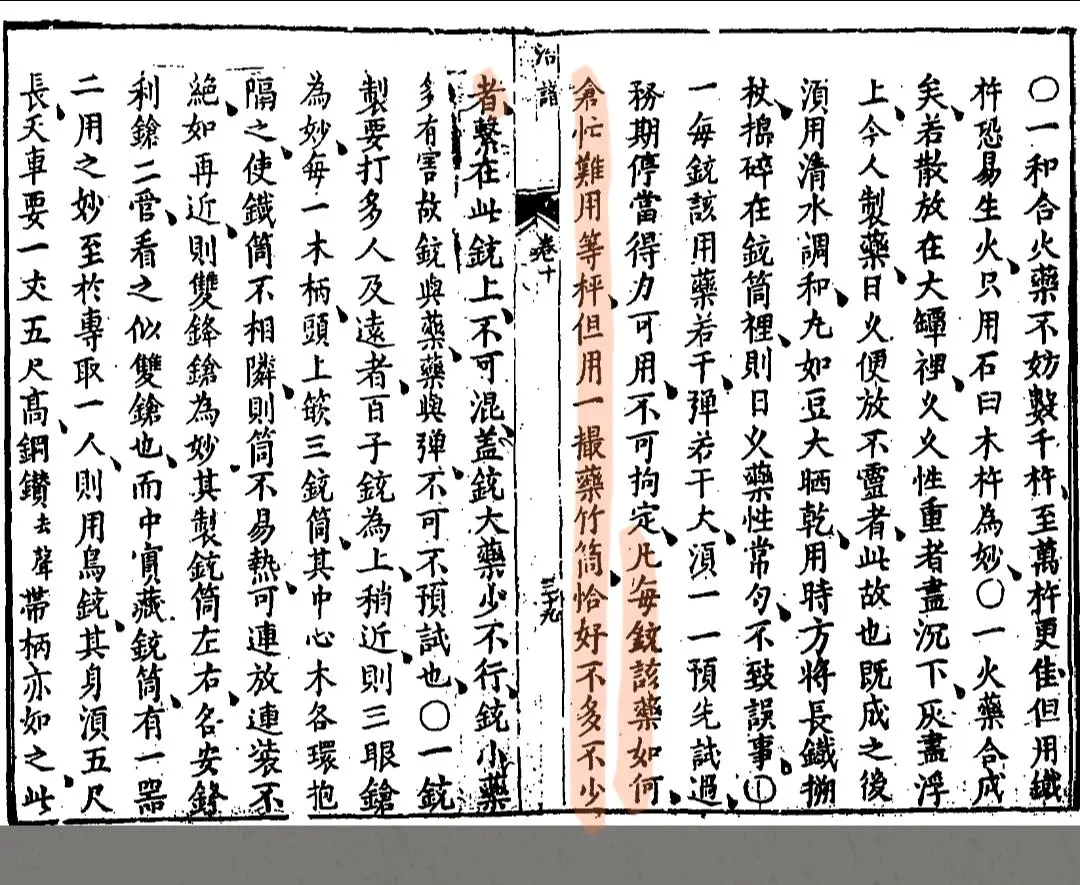 〇一和合火藥不妨數千杵至萬杵更佳但用鐵
杵恐易生火只用石臼木杵為妙〇一火藥合成
矣若散放在大罈裡久久性重者盡沉下灰盡浮
上今人製藥日久便放不靈者此故也既成之後
須用清水調和九如豆大晒乾用時方將長鐵搠
杖搗碎在銃筒裡則日久藥性常勻不致誤事〇
一每銃該用藥若干彈若干大須一一預先試過
務期停當得力可用不可拘定凡每銃該藥如何
倉忙難用等秤但用一撮藥竹筒恰好不多不少
治譜
卷十
三十九
者繫在此銃上不可混盖銃大藥少不行銃小藥
多有害故銃與藥藥與彈不可不預試也〇一銃
製要打多人及遠者百子銃為上稍近則三眼鎗
為妙每一木柄頭上篏三銃筒其中心木各環抱
隔之使鐵筒不相隣則筒不易熱可連放連裝不
絕如再近則雙鋒鎗為妙其製銃筒左右各安鋒
利鎗二管看之似雙鎗也而中實藏銃筒有一器
二用之妙至於專取一人則用鳥銃其身須五尺
長天車要一丈五尺高鋼鑽去聲帶柄亦如之此